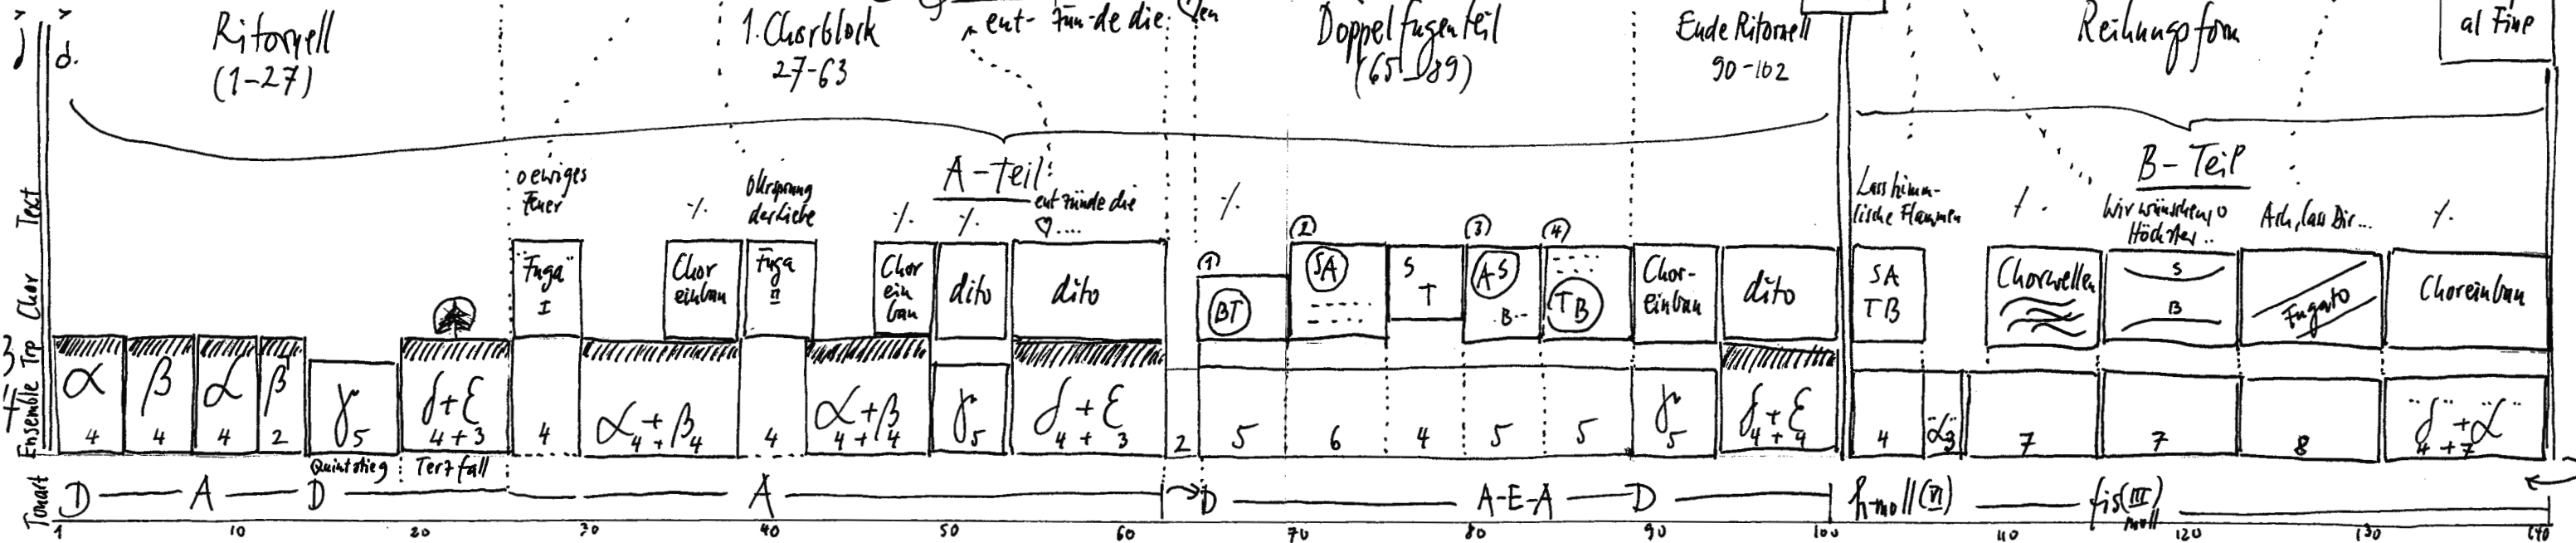 Ritornell
(1-27)
1. Chorblock
27-63
ent- zün-de die
Doppelfugenteil
(65-89)
Ende Ritornell
90-102
Reihungsform
al Fine
A-Teil
B-Teil
Text
o ewiges
Feuer
%
o Ursprung
der Liebe
%
%
entzünde die
♡....
%
Lass himm-
lische Flammen
%
Wir wünschen, o
Höchster..
Ach, lass Dir...
%
Chor
"Fuga"
I
Chor
einbau
Fuga
II
Chor
ein
bau
dito
dito
(1)
BT
(2)
SA
S
T
(3)
AS
B--
(4)
TB
Chor-
einbau
dito
SA
TB
Chorwellen
S
B
Fugato
Choreinbau
Trp
3
4
Ensemble
α β α β γ δ+ε α+β α+β γ δ+ε γ δ+ε "α" "δ"+"α"
4 4 4 2 5 4+3 4 4+4 4 4+4 5 4+3 2 5 6 4 5 5 5 4+4 4 3 7 7 8 4+7
Quintstieg
Terzfall
Tonart
D — A — D — A — → D — A-E-A — D — h-moll (VI) — fis (III)
moll
1 10 20 30 40 50 60 70 80 90 100 110 120 130 140